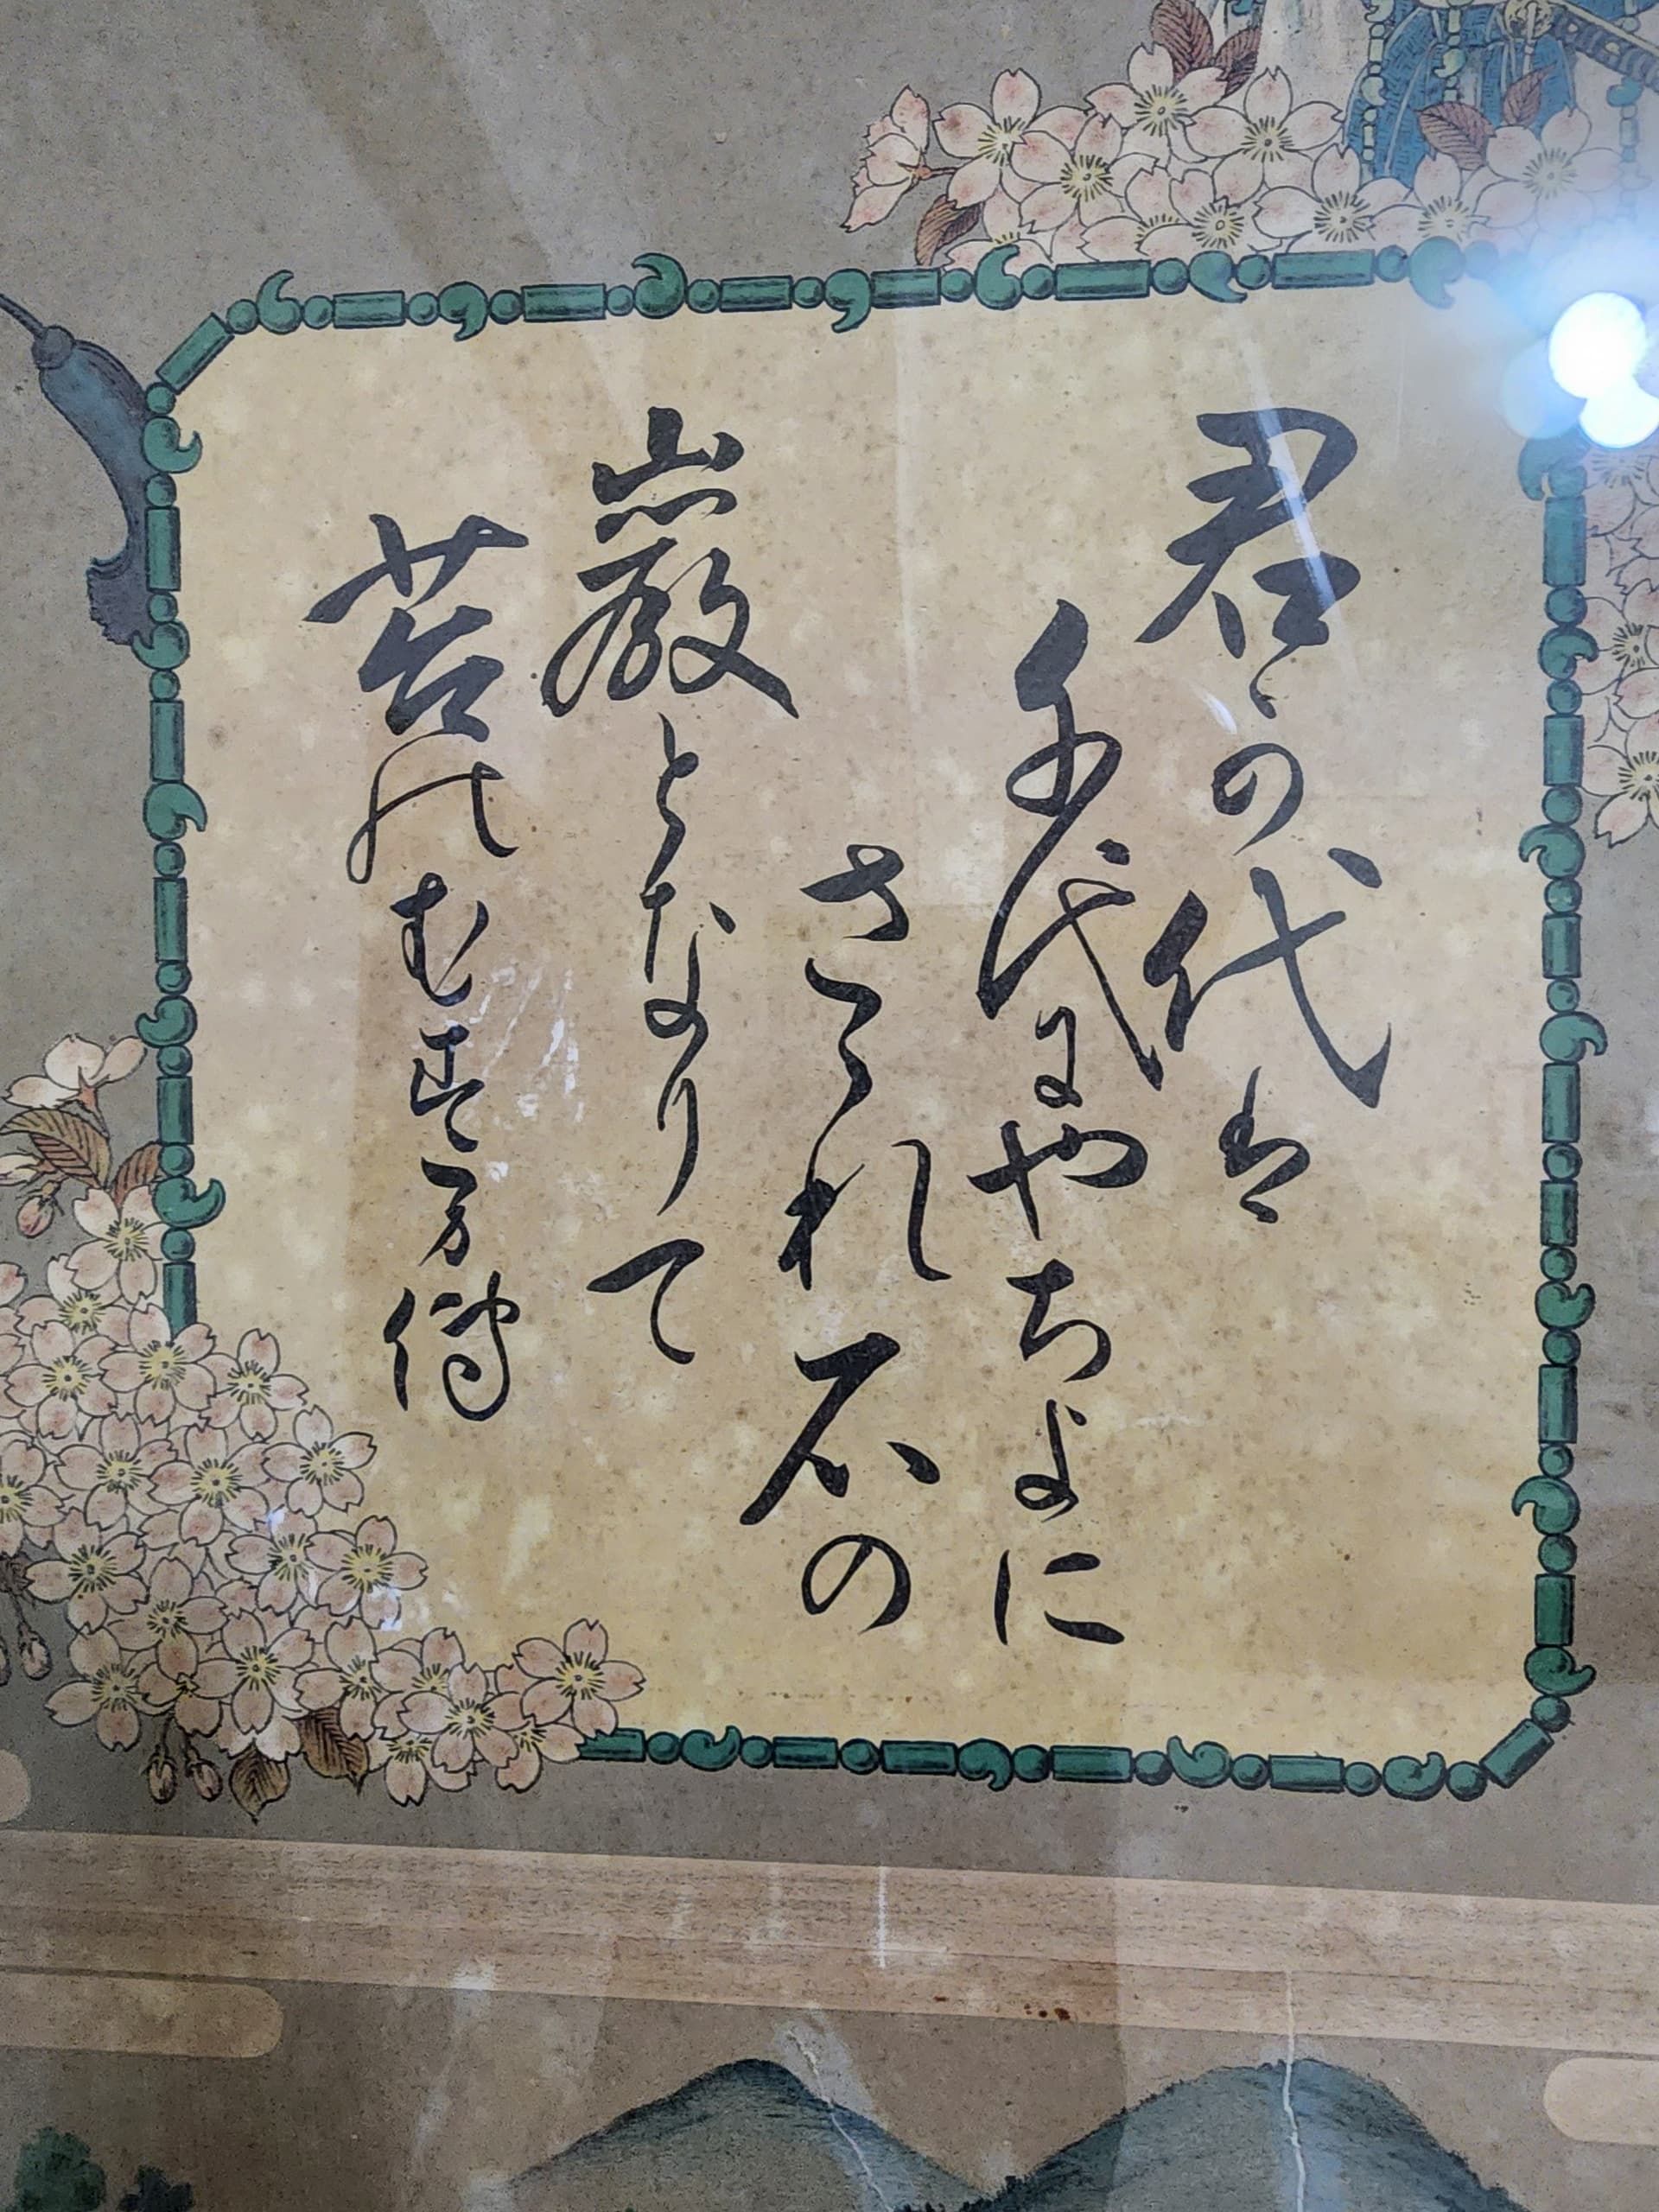 君か代は
千代にやちよに
さゝれ石の
巌となりて
苔のむすまて